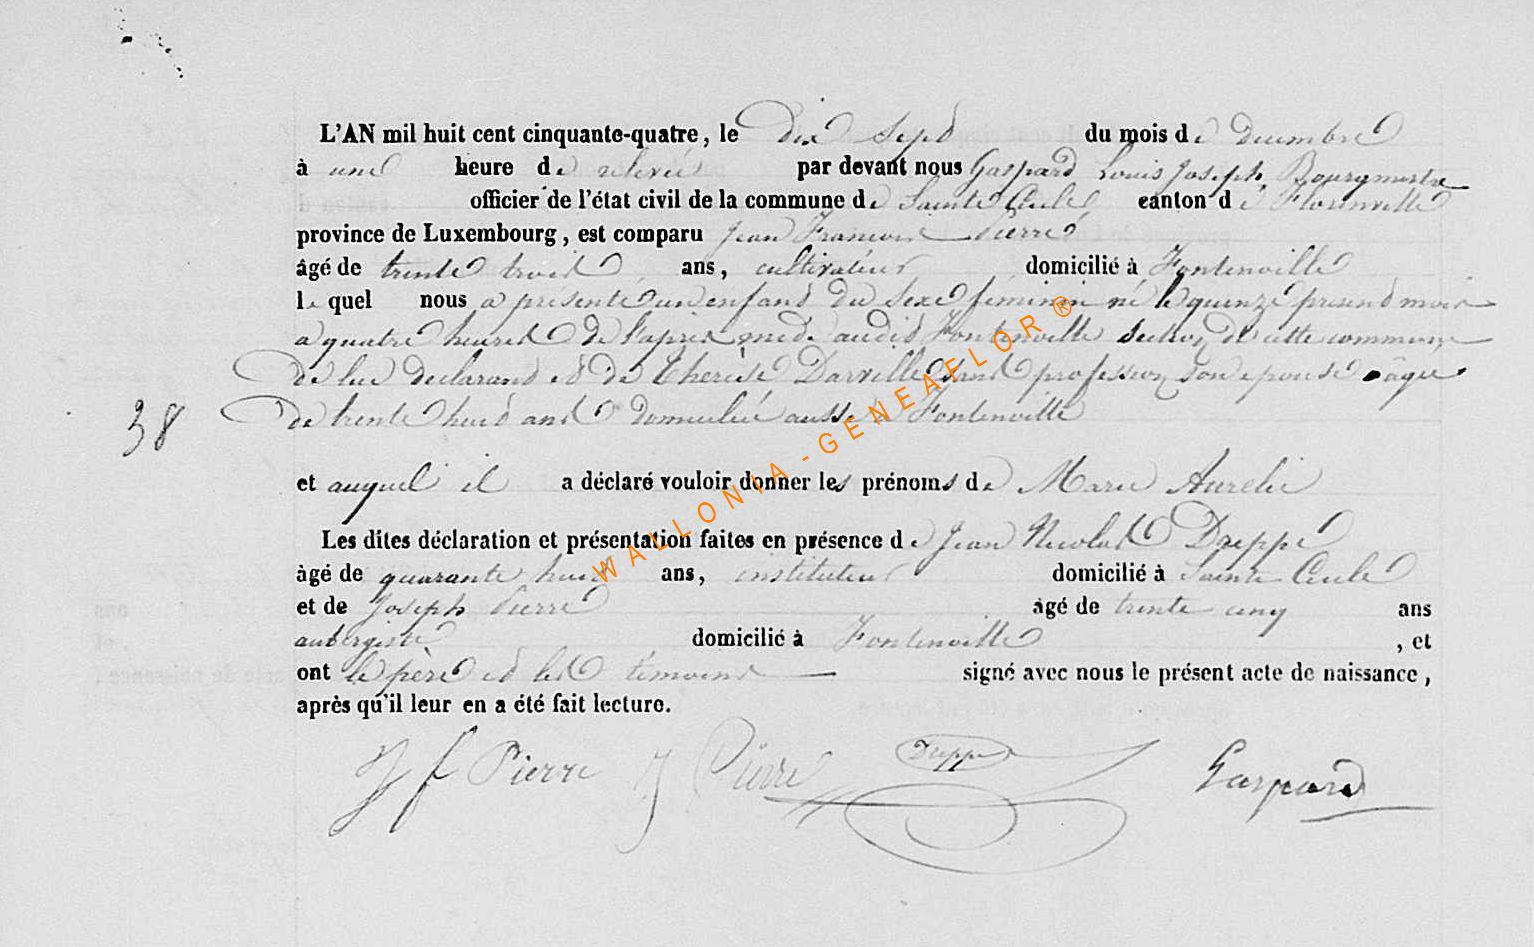 L'AN mil huit cent cinquante-quatre, le dix sept du mois de decembre
à une heure de relevée par devant nous Gaspard Louis Joseph, Bourgmestre
officier de l'état civil de la commune de Sainte Cecile canton de Florenville
province de Luxembourg, est comparu Jean Francois Pierre
âgé de trente trois ans, cultivateur domicilié à Fontenoille
le quel nous a présenté un enfant du sexe feminin né le quinze present mois
a quatre heures de l'apres midi audit Fontenoille section de cette commune
de lui declarant et de Therèse Darville sans profession son epouse âgée
de trente huit ans domiciliée aussi a Fontenoille
38
et auquel il a déclaré vouloir donner les prénoms de Marie Aurelie
Les dites déclaration et présentation faites en présence de Jean Nicolas Dreppe
âgé de quarante huit ans, instituteur domicilié à Sainte Cecile
et de Joseph Pierre âgé de trente cinq ans
aubergiste domicilié à Fontenoille, et
ont le père et les témoins signé avec nous le présent acte de naissance,
après qu'il leur en a été fait lecture.
J f Pierre J Pierre Dreppe Gaspard
WALLONIA-GENEAFLOR ®